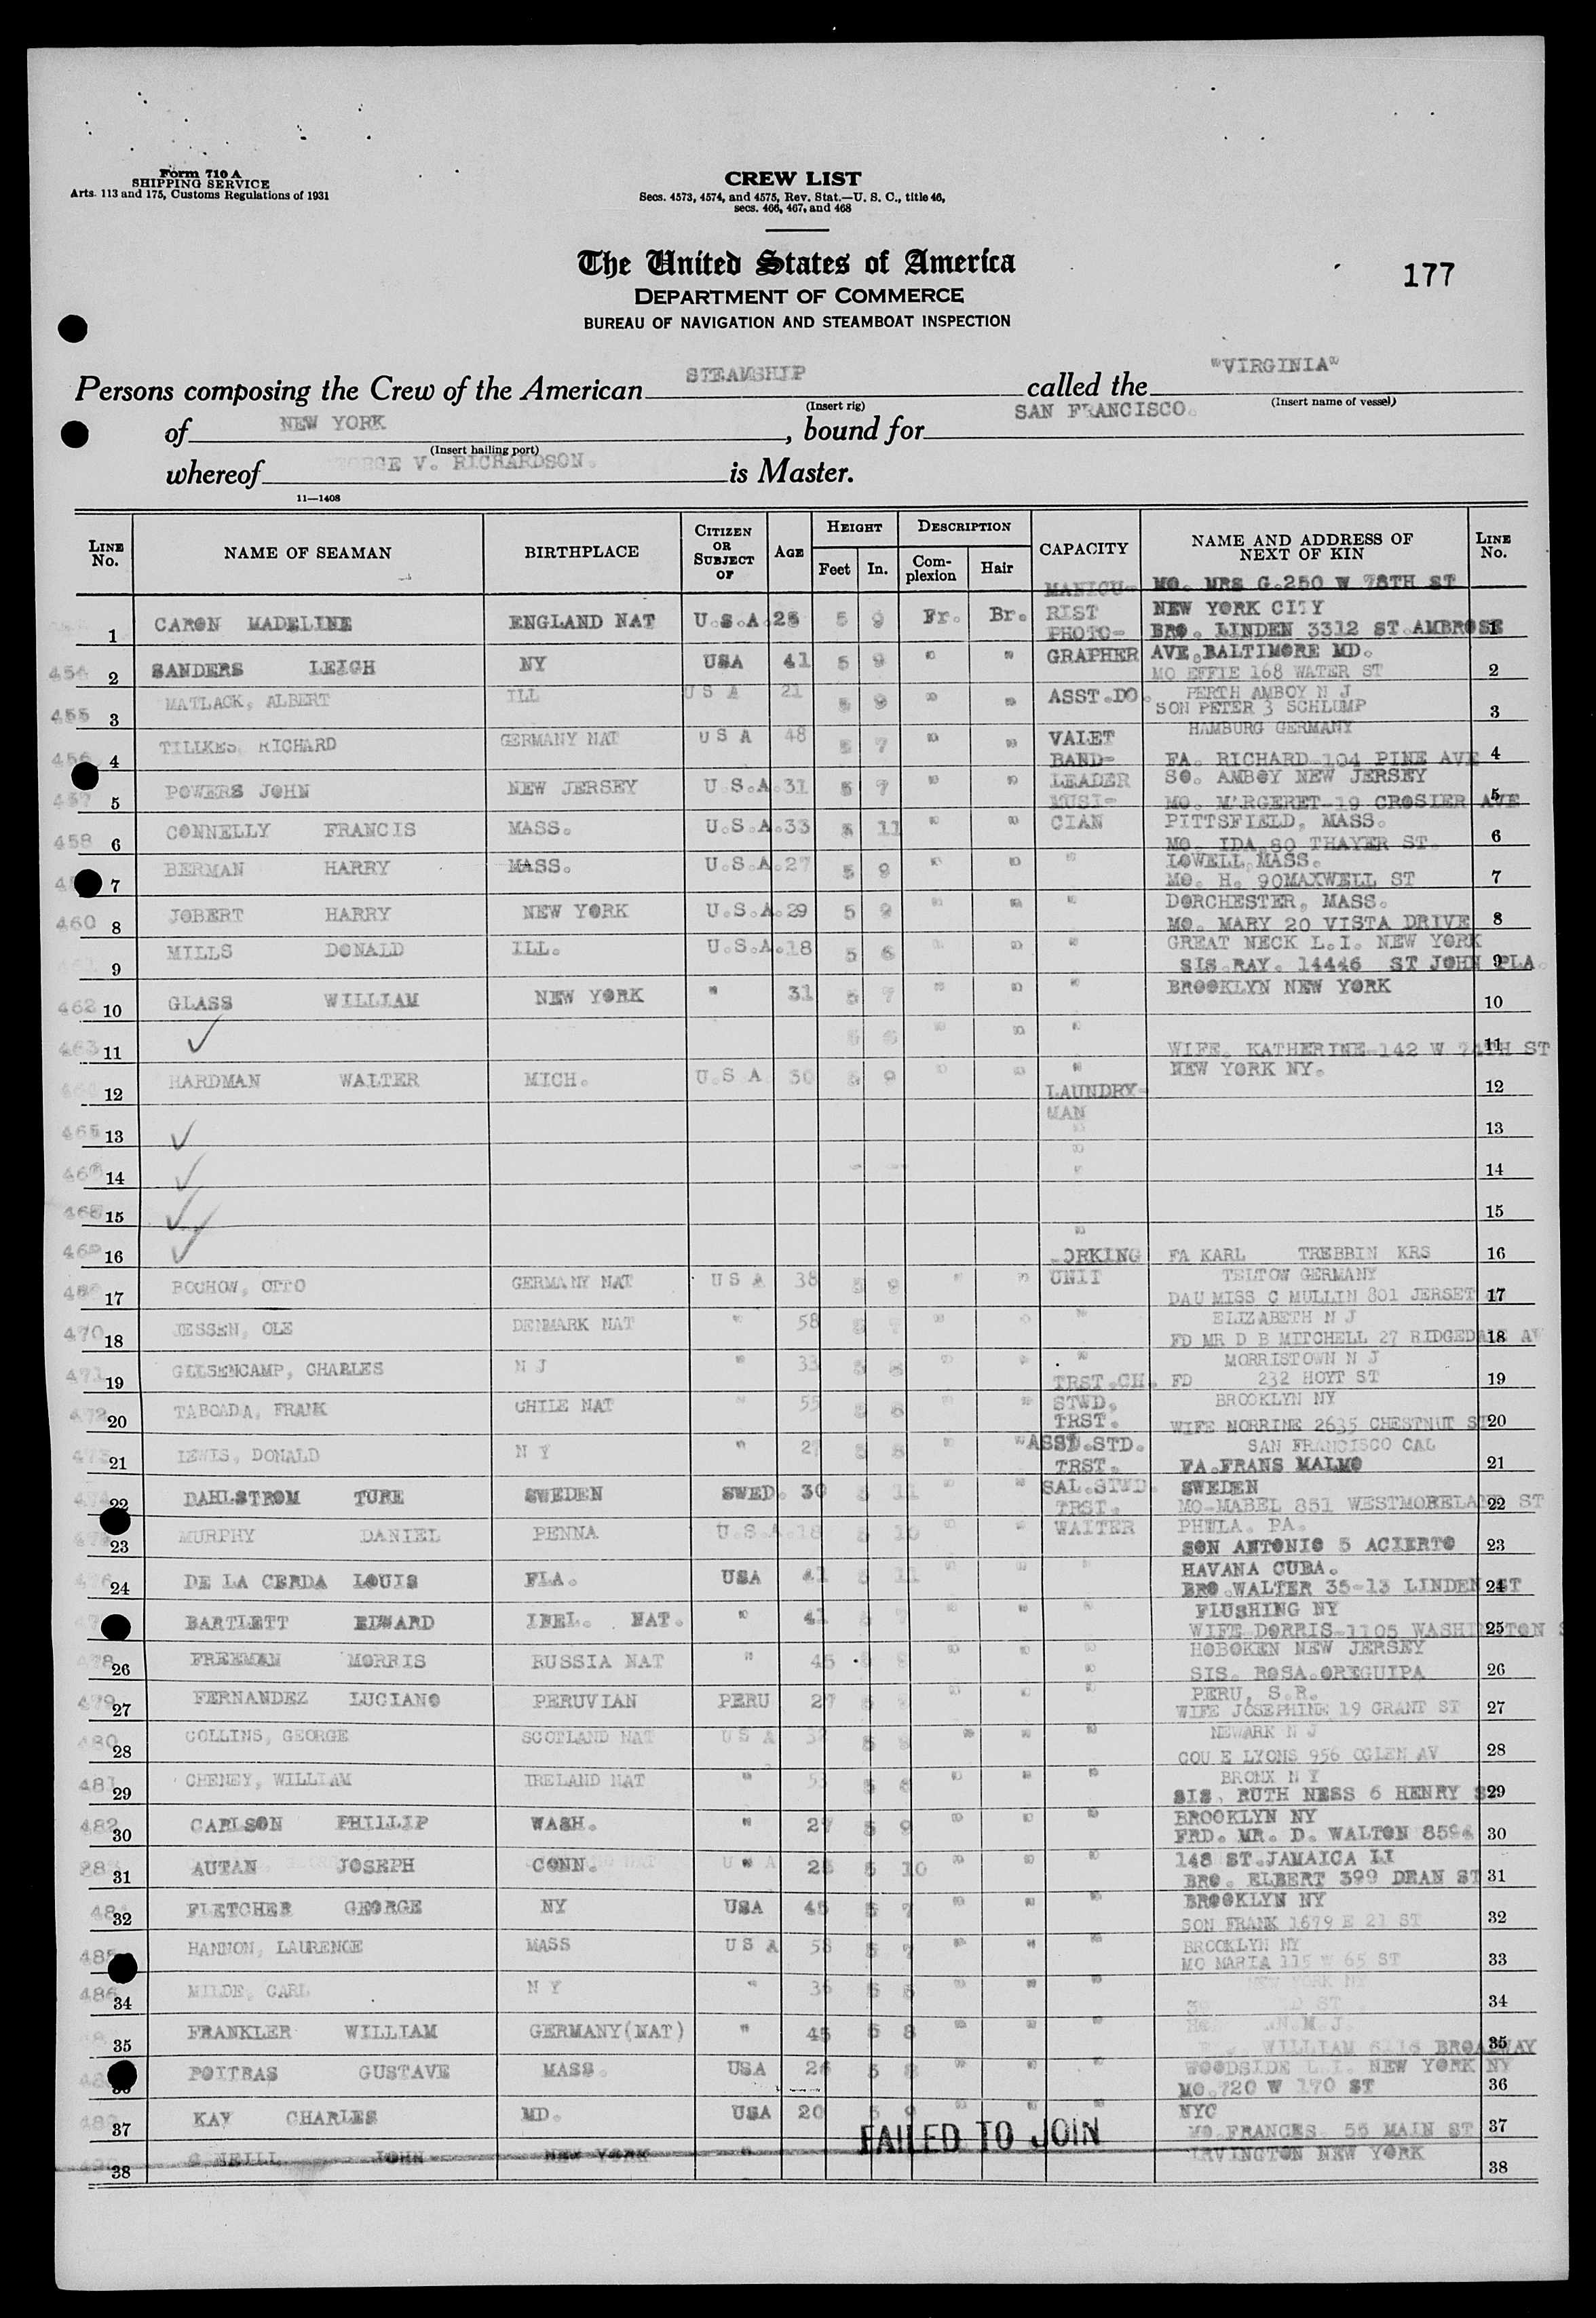 Form 710 A
SHIPPING SERVICE
Arts. 113 and 175, Customs Regulations of 1931
CREW LIST
Secs. 4573, 4574, and 4575, Rev. Stat.—U. S. C., title 46,
secs. 466, 467, and 468
The United States of America
DEPARTMENT OF COMMERCE
BUREAU OF NAVIGATION AND STEAMBOAT INSPECTION
177
Persons composing the Crew of the American STEAMSHIP called the "VIRGINIA"
(Insert rig) (Insert name of vessel)
of NEW YORK, bound for SAN FRANCISCO.
(Insert hailing port)
whereof ORGE V. RICHARDSON. is Master.
11—1408
LINE No. NAME OF SEAMAN BIRTHPLACE CITIZEN OR SUBJECT OF AGE HEIGHT Feet In. DESCRIPTION Complexion Hair CAPACITY NAME AND ADDRESS OF NEXT OF KIN LINE No.
MANICU- MO. MRS G.250 W 78TH ST
1 CARON MADELINE ENGLAND NAT U.S.A. 25 5 9 Fr. Br. RIST NEW YORK CITY 1
PHOTO- BRO. LINDEN 3312 ST.AMBROSE
454 2 SANDERS LEIGH NY USA 41 5 9 " " GRAPHER AVE.BALTIMORE MD. 2
MO EFFIE 168 WATER ST
455 3 MATLACK, ALBERT ILL U S A 21 5 9 " " ASST.DO. PERTH AMBOY N J 3
SON PETER 3 SCHLUMP
456 4 TILLKES, RICHARD GERMANY NAT U S A 48 5 7 " " VALET HAMBURG GERMANY 4
BAND- FA. RICHARD-104 PINE AVE
457 5 POWERS JOHN NEW JERSEY U.S.A. 31 5 7 " " LEADER SO. AMBOY NEW JERSEY 5
MUSI- MO. MARGERET-19 CROSIER AVE
458 6 CONNELLY FRANCIS MASS. U.S.A. 33 5 11 " " CIAN PITTSFIELD, MASS. 6
MO. IDA.80 THAYER ST.
7 BERMAN HARRY MASS. U.S.A. 27 5 9 " " " LOWELL,MASS. 7
MO. H. 90MAXWELL ST
460 8 JOBERT HARRY NEW YORK U.S.A. 29 5 9 " " " DORCHESTER, MASS. 8
MO. MARY 20 VISTA DRIVE
9 MILLS DONALD ILL. U.S.A. 18 5 6 " " " GREAT NECK L.I. NEW YORK 9
SIS.RAY. 14446 ST JOHN PLA.
462 10 GLASS WILLIAM NEW YORK " 31 5 7 " " " BROOKLYN NEW YORK 10
463 11 5 6 " " " 11
WIFE. KATHERINE-142 W 74TH ST
12 HARDMAN WALTER MICH. U.S.A. 30 5 9 " " " NEW YORK NY. 12
LAUNDRY-
MAN
465 13 " 13
14 " 14
15 15
16 " 16
ORKING FA KARL TREBBIN KRS
17 BOCHOW, OTTO GERMANY NAT U S A 38 5 9 " " UNIT TELTOW GERMANY 17
DAU MISS C MULLIN 801 JERSET
470 18 JESSEN, OLE DENMARK NAT " 58 5 7 " " " ELIZABETH N J 18
FD MR D B MITCHELL 27 RIDGEDALE AV
471 19 GILSENCAMP, CHARLES N J " 33 5 8 " " " MORRISTOWN N J 19
TRST.CH. FD 232 HOYT ST
472 20 TABOADA, FRANK CHILE NAT " 55 5 8 " " STWD. BROOKLYN NY 20
TRST. WIFE NORRINE 2635 CHESTNUT ST
473 21 LEWIS, DONALD N Y " 27 5 8 " " ASST.STD. SAN FRANCISCO CAL 21
TRST. FA.FRANS MALMO
22 DAHLSTROM TURE SWEDEN SWED. 30 5 11 " " SAL.STWD. SWEDEN 22
TRST. MO-MABEL 851 WESTMORELAND ST
23 MURPHY DANIEL PENNA U.S.A. 18 5 10 " " WAITER PHILA. PA. 23
SON ANTONIO 5 ACIERTO
24 DE LA CERDA LOUIS FLA. USA 41 5 11 " " " HAVANA CUBA. 24
BRO.WALTER 35-13 LINDEN ST
25 BARTLETT EDWARD IREL. NAT. " 41 5 7 " " " FLUSHING NY 25
WIFE DORRIS-1105 WASHINGTON S
478 26 FREEMAN MORRIS RUSSIA NAT " 45 " " HOBOKEN NEW JERSEY 26
SIS. ROSA.OREGUIPA
479 27 FERNANDEZ LUCIANO PERUVIAN PERU 27 5 " " " PERU, S.R. 27
WIFE JOSEPHINE 19 GRANT ST
480 28 COLLINS, GEORGE SCOTLAND NAT U S A 5 " " " NEWARK N J 28
COU E LYONS 956 OGLEN AV
481 29 CHENEY, WILLIAM IRELAND NAT " 5 " " " BRONX N Y 29
SIS. RUTH NESS 6 HENRY ST
482 30 CARLSON PHILLIP WASH. " 27 5 9 " " " BROOKLYN NY 30
FRD. MR. D. WALTON 8594
31 AUTAN JOSEPH CONN. " 5 10 " " " 148 ST.JAMAICA LI 31
BRO. ELBERT 399 DEAN ST
32 FLETCHER GEORGE NY USA 45 5 7 " " " BROOKLYN NY 32
SON FRANK 1679 E 21 ST
485 33 HANNON, LAURENCE MASS U S A 58 5 7 " " " BROOKLYN NY 33
MO MARIA 115 W 65 ST
486 34 MILDE, CARL N Y " 36 5 8 " " " NEW YORK NY 34
35 FRANKLER WILLIAM GERMANY(NAT) " 45 5 8 " " " 35
WILLIAM 6116 BROADWAY
36 POITRAS GUSTAVE MASS. USA 26 5 8 " " " WOODSIDE L.I. NEW YORK NY 36
MO.720 W 170 ST
37 KAY CHARLES MD. USA 20 5 9 " " " NYC 37
MO.FRANCES 55 MAIN ST
FAILED TO JOIN
38 O NEILL JOHN NEW YORK " IRVINGTON NEW YORK 38